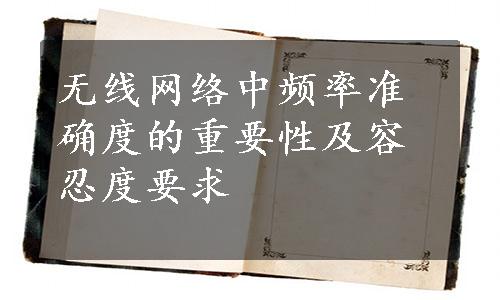 无线网络中频率准
确度的重要性及容
忍度要求